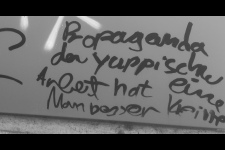 Propaganda
der yuppischen
Arbeit hat eine
Man besser